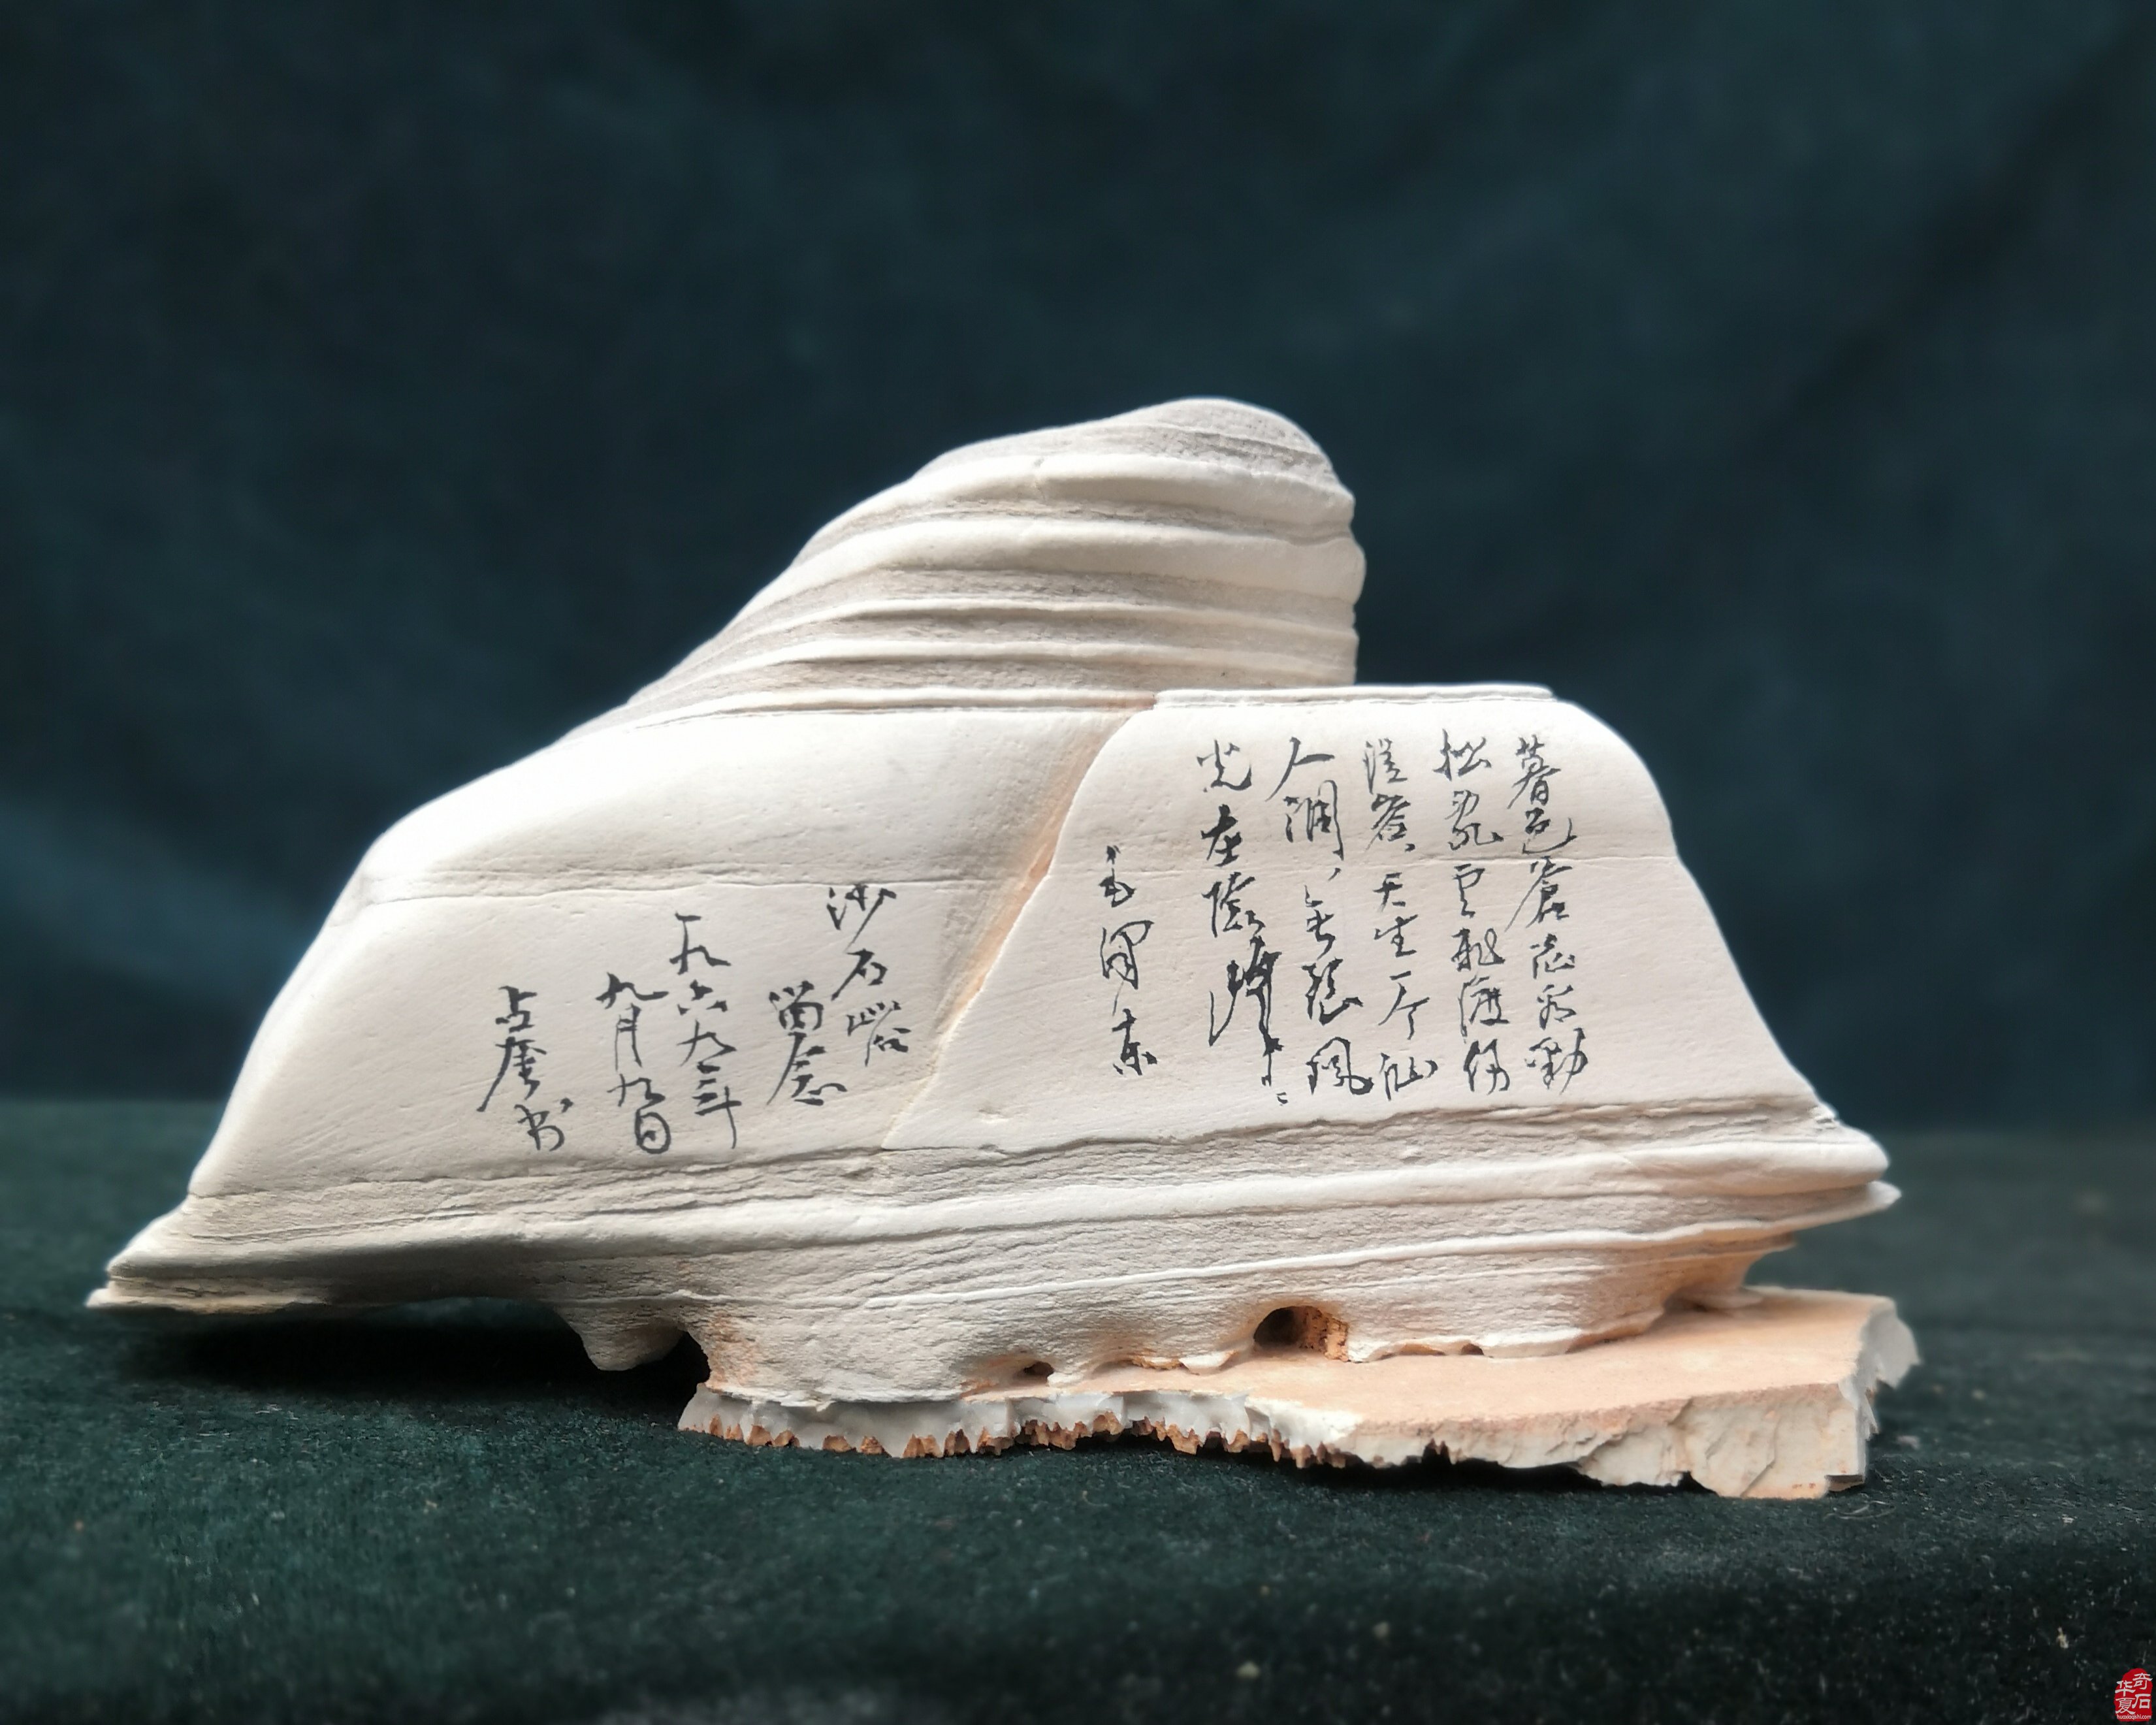 暮色蒼茫看勁
松亂云飛渡仍
從容天生一个仙
人洞無限風
光在險峰
毛澤东
沙石峪
留念
一九六九年
九月九日
占奎书
华夏奇石